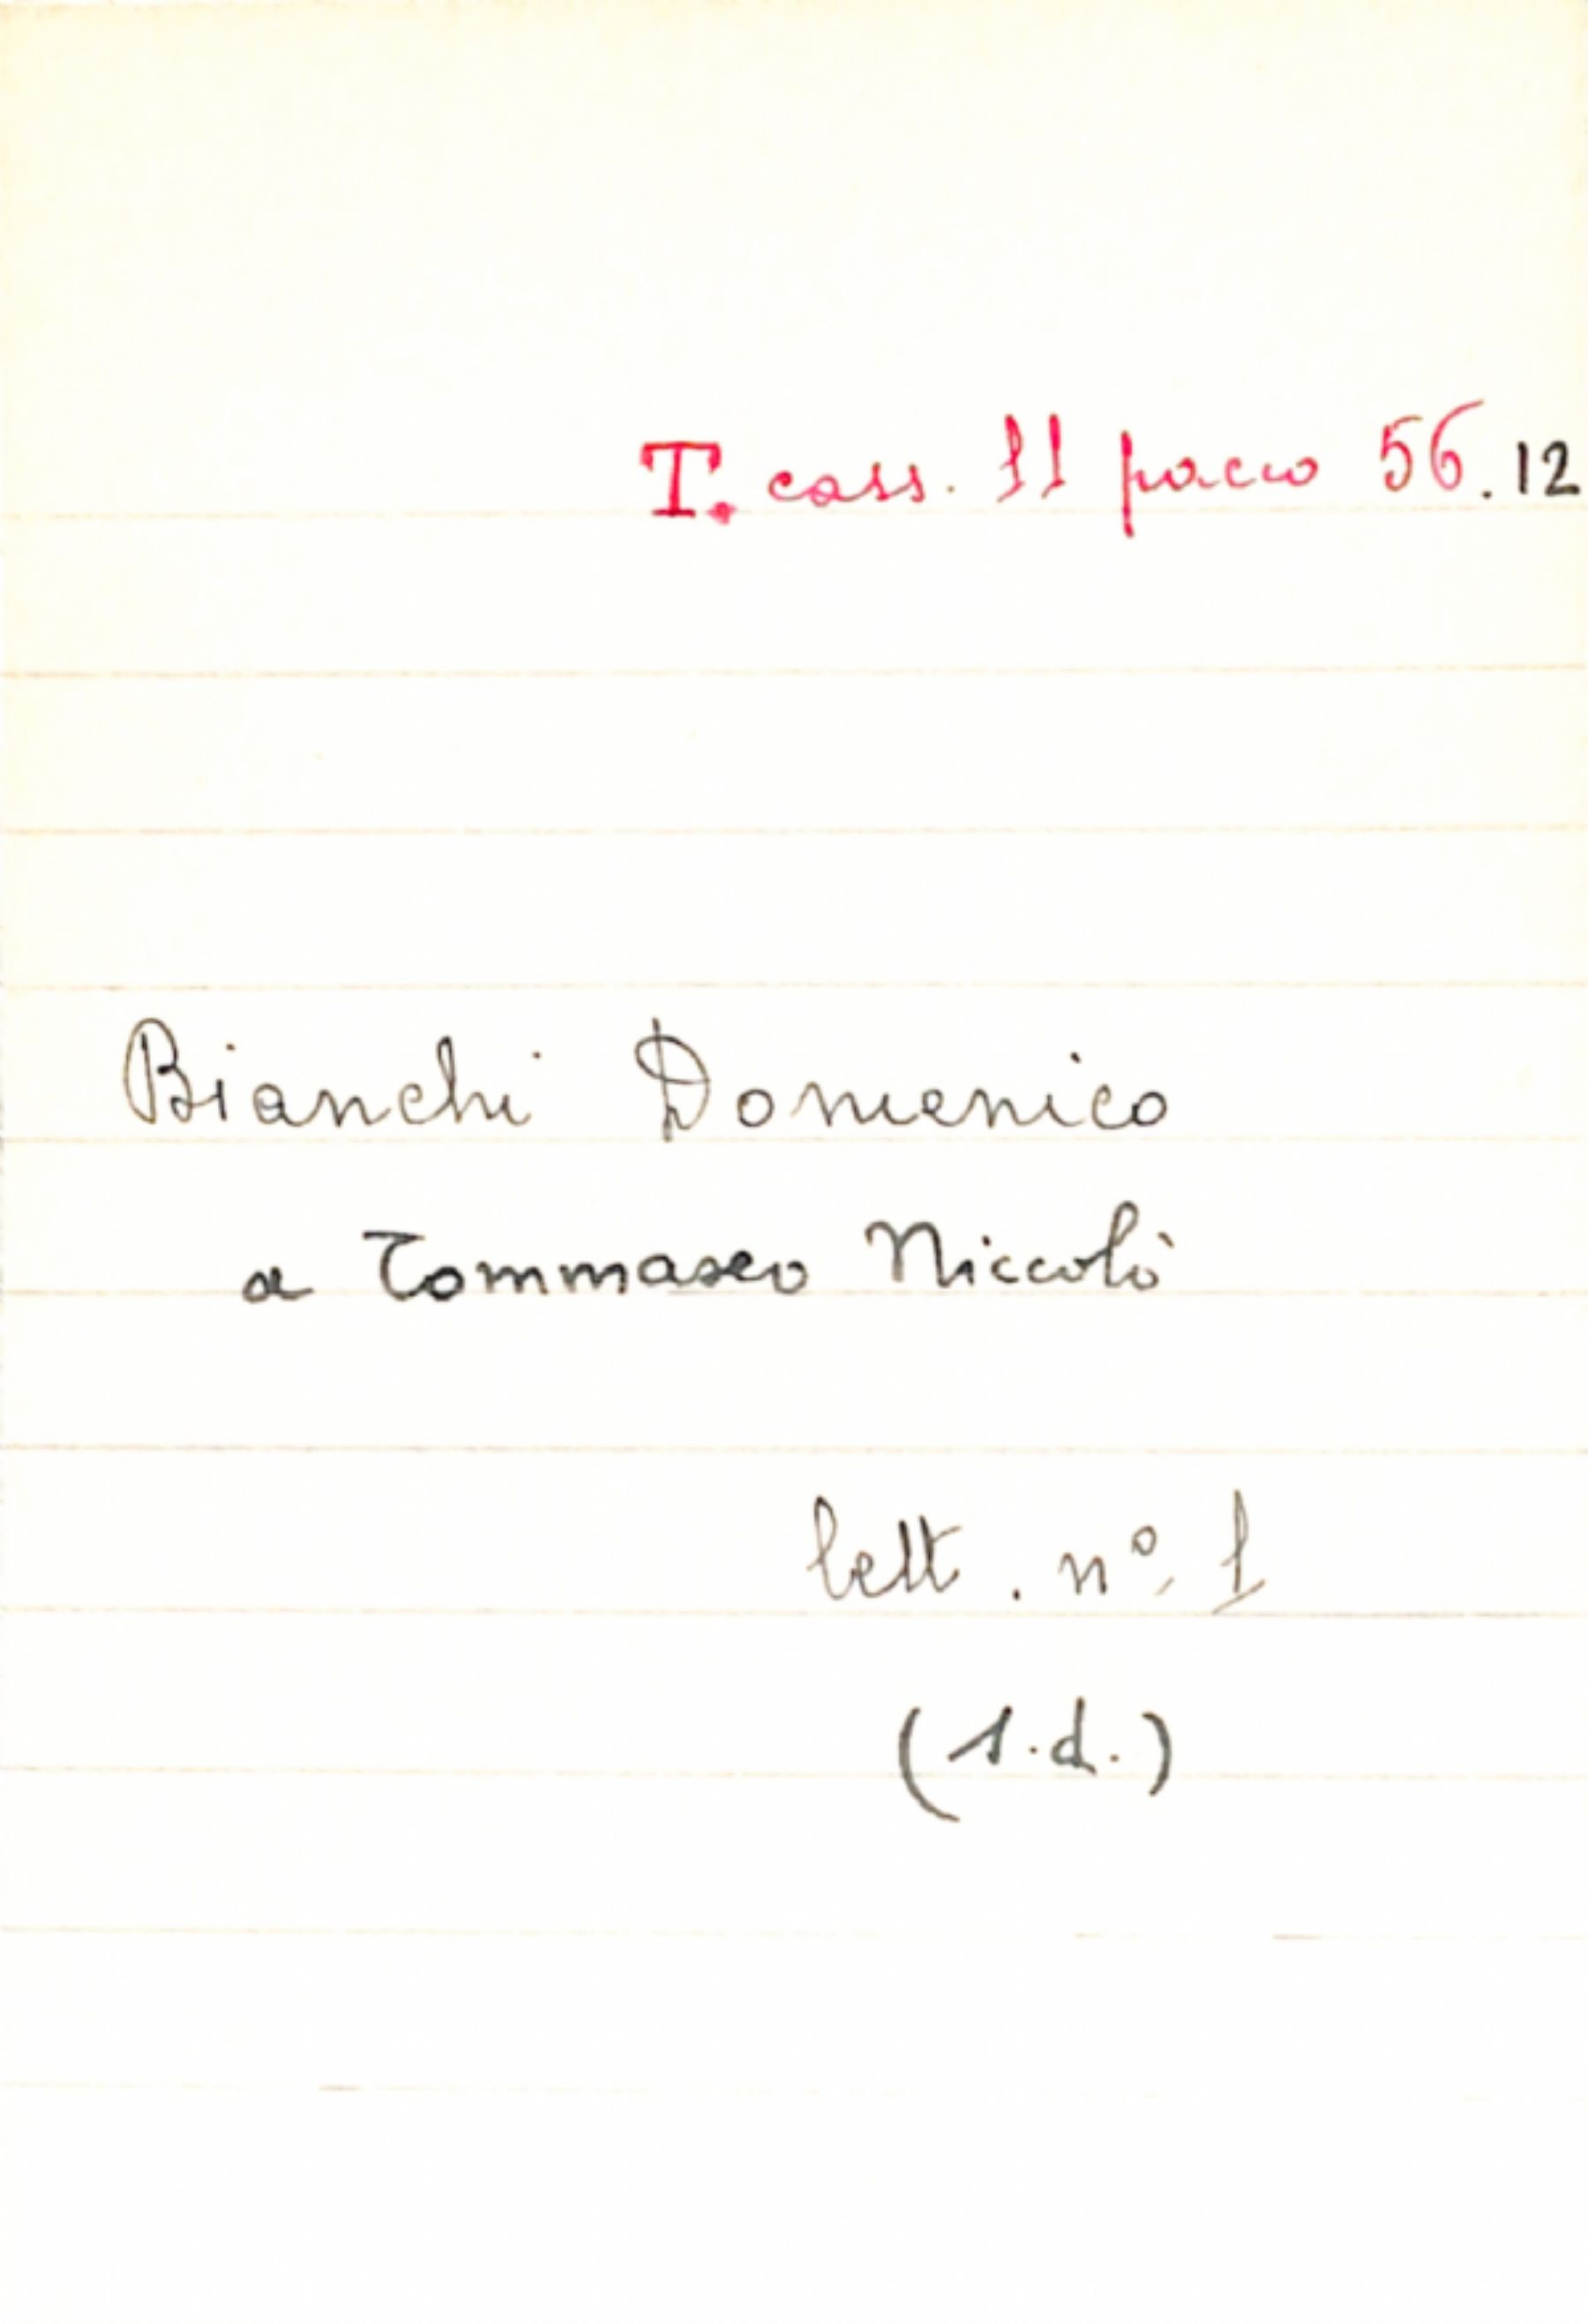 T. cass. 11 pacco 56.12
Bianchi Domenico
a Tommaseo Niccolò
lett. nº. 1
(s.d.)